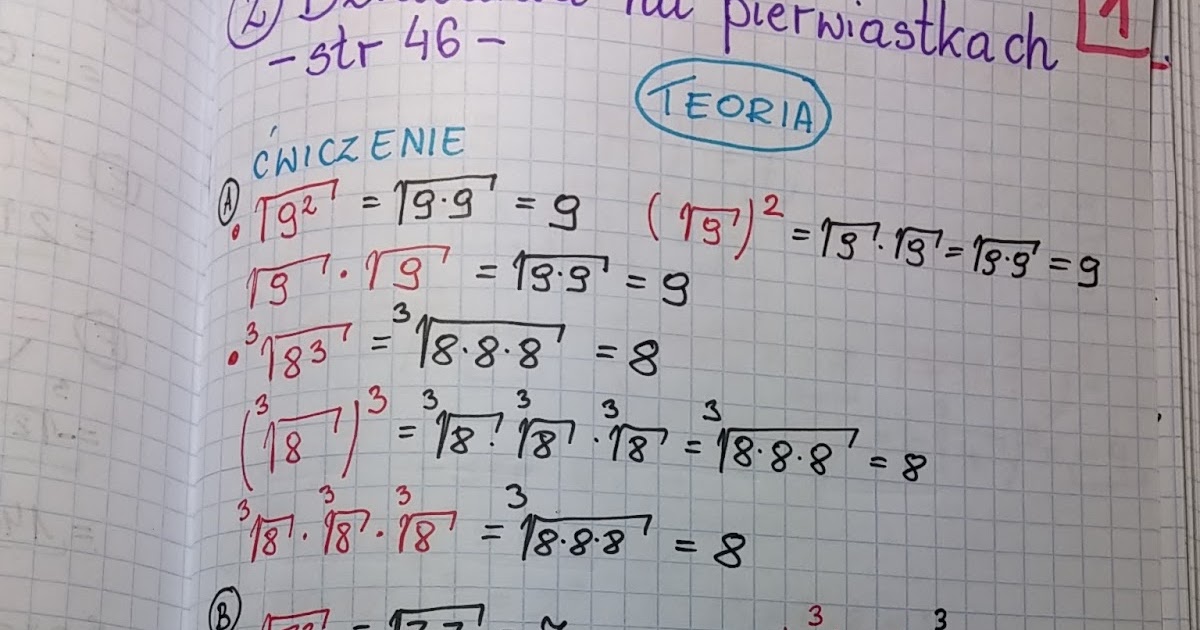 ② na pierwiastkach 1
- str 46 -
TEORIA
ĆWICZENIE
Ⓐ • √9² = √9·9 = 9 (√9)² = √9·√9 = √9·9 = 9
√9 · √9 = √9·9 = 9
• ³√8³ = ³√8·8·8 = 8
(³√8)³ = ³√8 · ³√8 · ³√8 = ³√8·8·8 = 8
³√8 · ³√8 · ³√8 = ³√8·8·8 = 8
Ⓑ